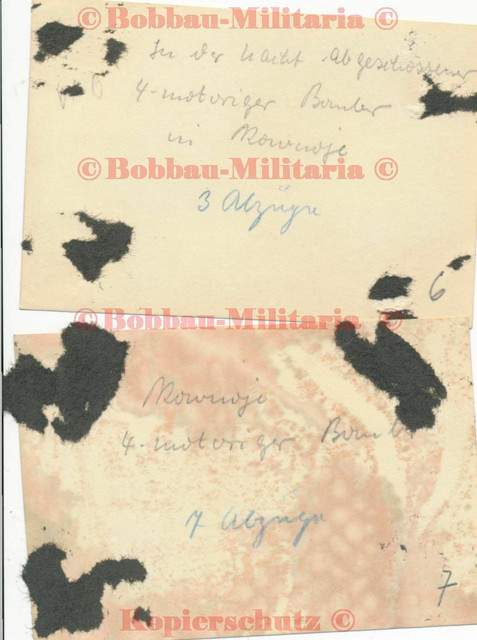 © Bobbau-Militaria ©
In der Nacht Abgeschossener
4-motoriger Bomber
in Rownoje
© Bobbau-Militaria ©
3 Abzüge
6
© Bobbau-Militaria ©
Rownoje
4-motoriger Bomber
7 Abzüge
7
Kopierschutz ©